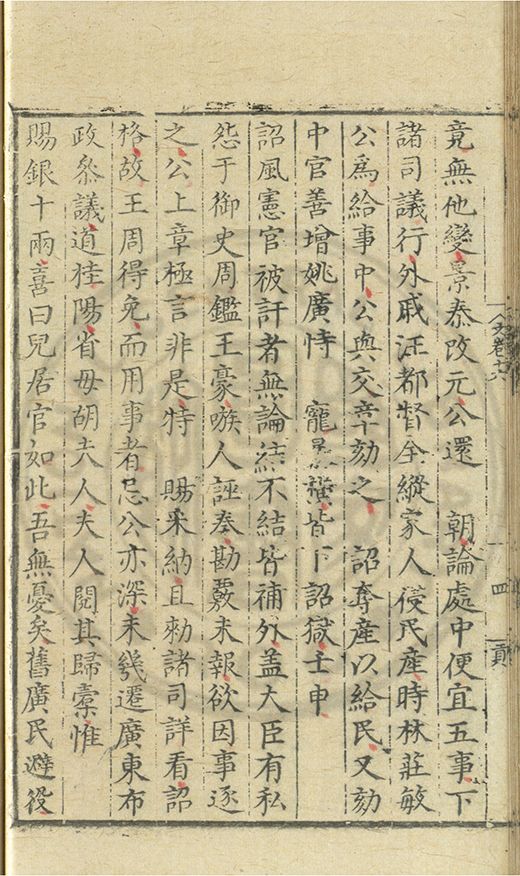 竟無他變景泰改元公還　朝論處中便宜五事下
諸司議行外戚汪都督全縱家人侵民產時林莊敏
公為給事中公與交章劾之　詔奪產以給民又劾
中官善增姚廣恃　寵　橫皆下詔獄壬申
詔風憲官被訐者無論結不結皆補外盖大臣有私
怨于御史周鑑王豪嗾人誣奏勘覈未報欲因事逐
之公上章極言非是特　賜采納且勑諸司詳看詔
格故王周得免而用事者忌公亦深未幾遷廣東布
政叅議道桂陽省母胡夫人夫人閱其歸橐惟
賜銀十兩喜曰兒居官如此吾無憂矣舊廣民避役
人文卷六
四
貢